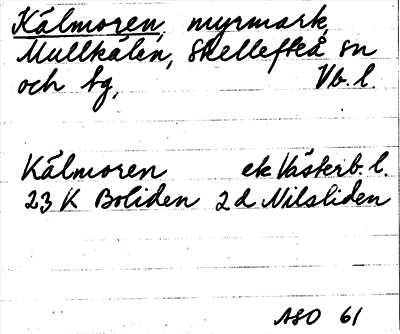 Kålmoren, myrmark,
Mullkälen, Skellefteå sn
och tg, Vb. l.
Kålmoren ek Västerb. l.
23 K Boliden 2 d Nilsliden
ASO 61